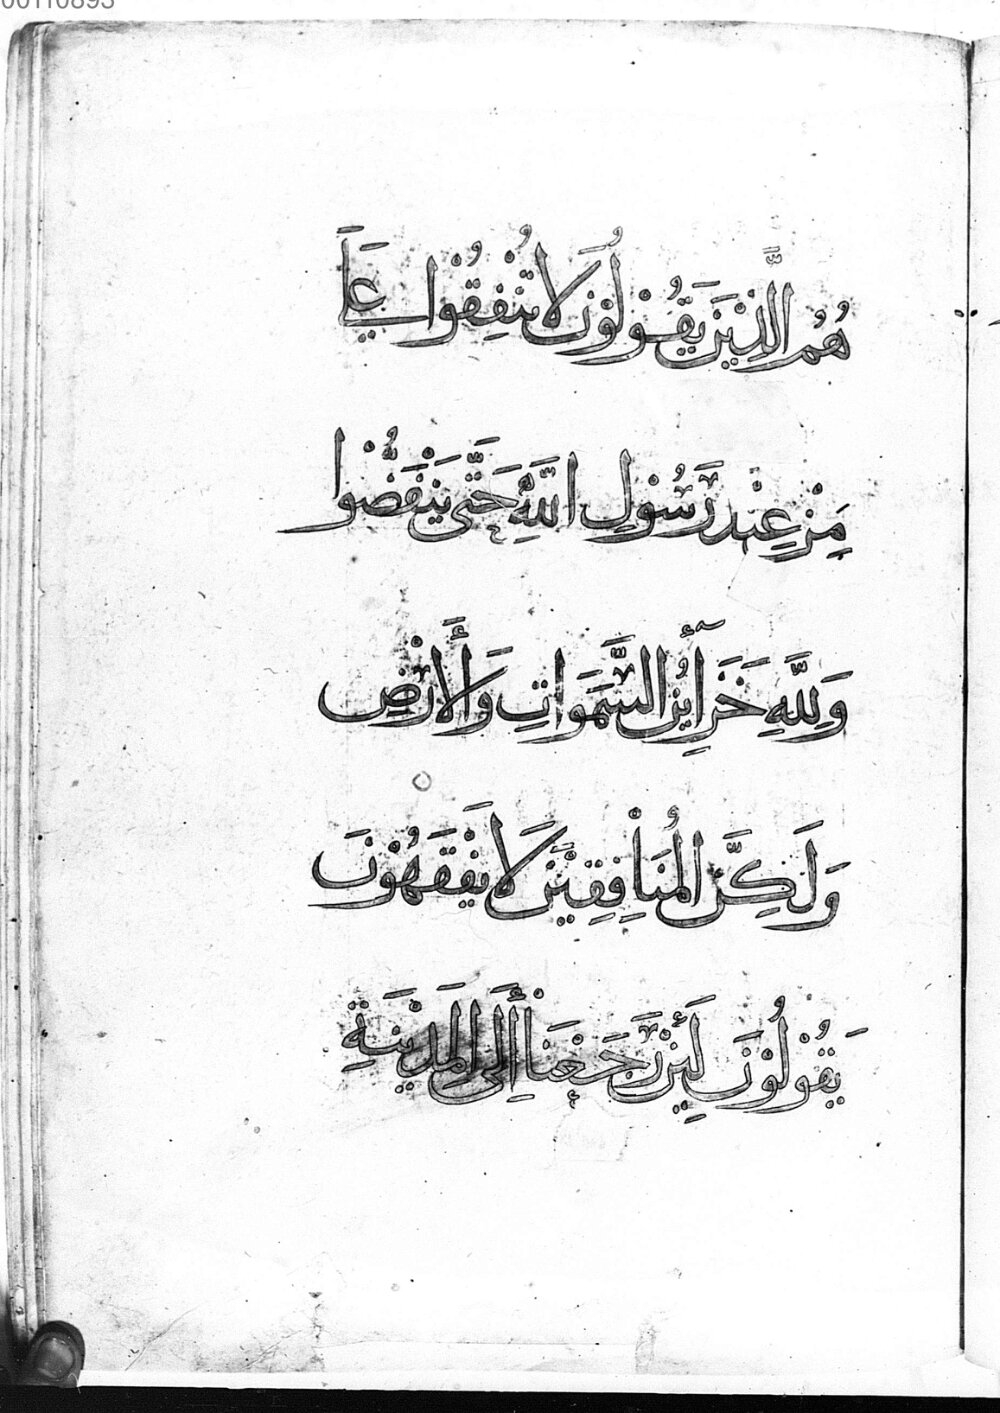 00110893
هُمُ الَّذِيْنَ يَقُوْلُوْنَ لَا تُنْفِقُوْا عَلَى
مِنْ عِنْدِ رَسُوْلِ اللَّهِ حَتَّى يَنْفَضُّوْا
وَلِلَّهِ خَزَآئِنُ السَّمَوَاتِ وَالْأَرْضِ
وَلَكِنَّ الْمُنَافِقِيْنَ لَا يَفْقَهُوْنَ
يَقُوْلُوْنَ لَئِنْ رَّجَعْنَا إِلَى الْمَدِيْنَةِ